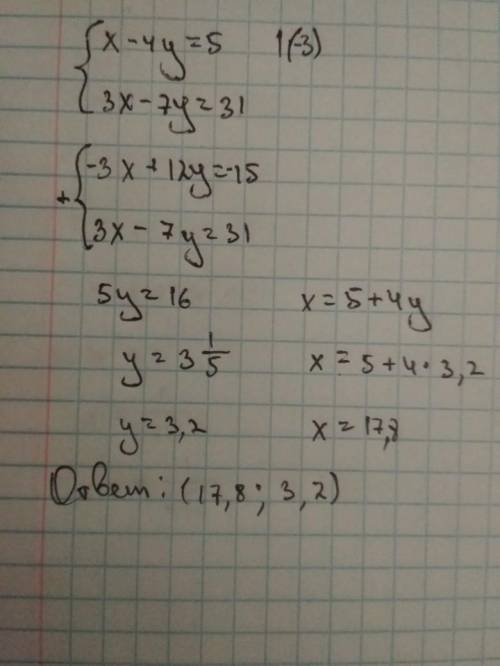 x - 4y = 5 | (-3)
3x - 7y = 31
-3x + 12y = -15
+
3x - 7y = 31
5y = 16 x = 5 + 4y
y = 3 1/5 x = 5 + 4 · 3,2
y = 3,2 x = 17,8
Ответ: (17,8; 3,2)